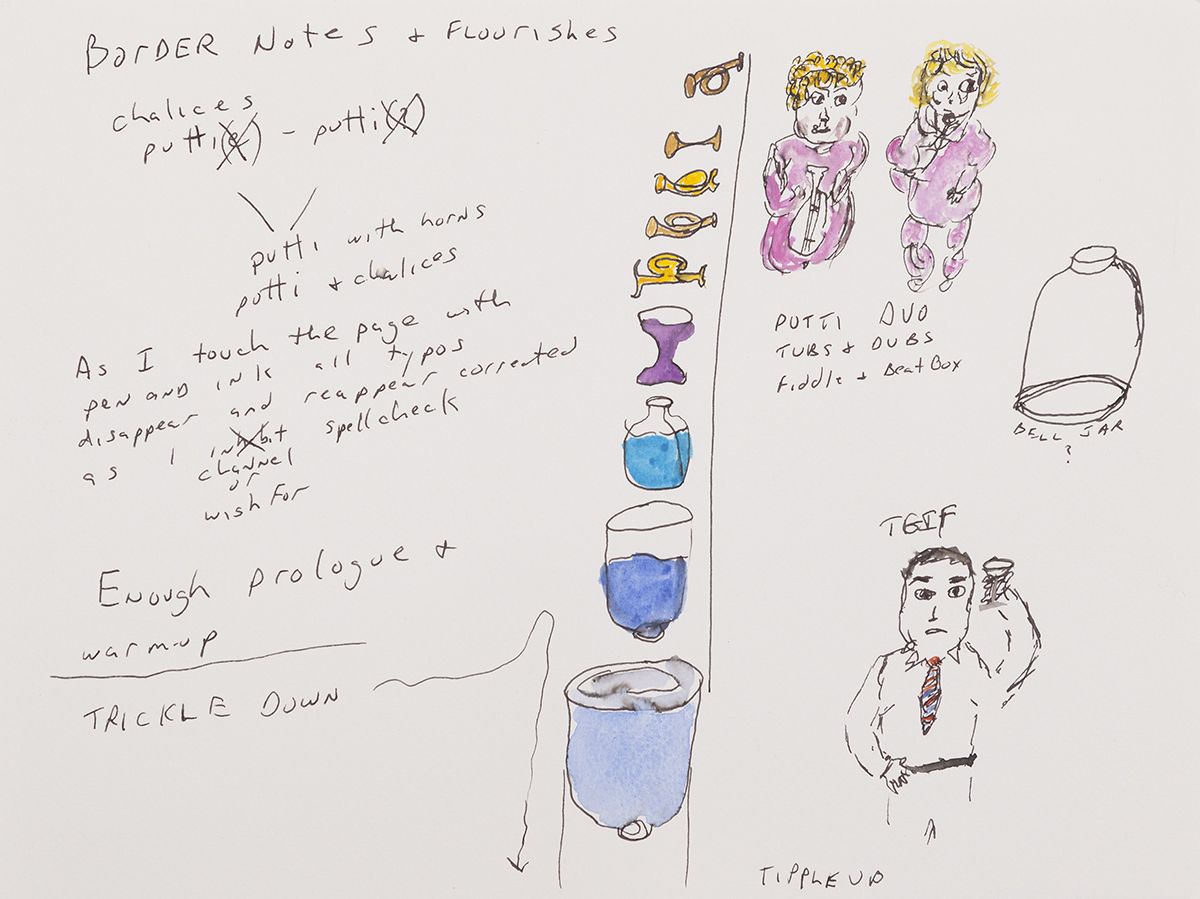 BORDER NOTES + FLOURISHES
chalices
putti(e) - putti(?)
putti with horns
putti + chalices
As I touch the page with
pen and ink all typos
disappear and reappear corrected
as I inhibit spellcheck
channel
or
wish for
Enough prologue +
warm-up
TRICKLE DOWN
PUTTI DUO
TUBS + DUBS
Fiddle + Beat Box
BELL JAR
?
TGIF
TIPPLE UP